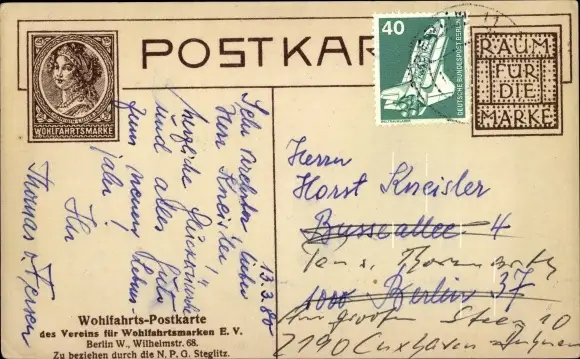 POSTKAR
WOHLFAHRTSMARKE
40
DEUTSCHE BUNDESPOST BERLIN
RAUM
FÜR
DIE
MARKE
13.3.80
Sehr lieber
Herr Kneisler!
herzliche Glückwünsche
und alles Gute
zum neuen Lebens-
jahr!
Ihr
Thomas
Herrn
Horst Kneisler
Busseallee 4
1000 Berlin 37
Steeg 10
2190 Cuxhaven
Wohlfahrts-Postkarte
des Vereins für Wohlfahrtsmarken E. V.
Berlin W., Wilhelmstr. 68.
Zu beziehen durch die N. P. G. Steglitz.